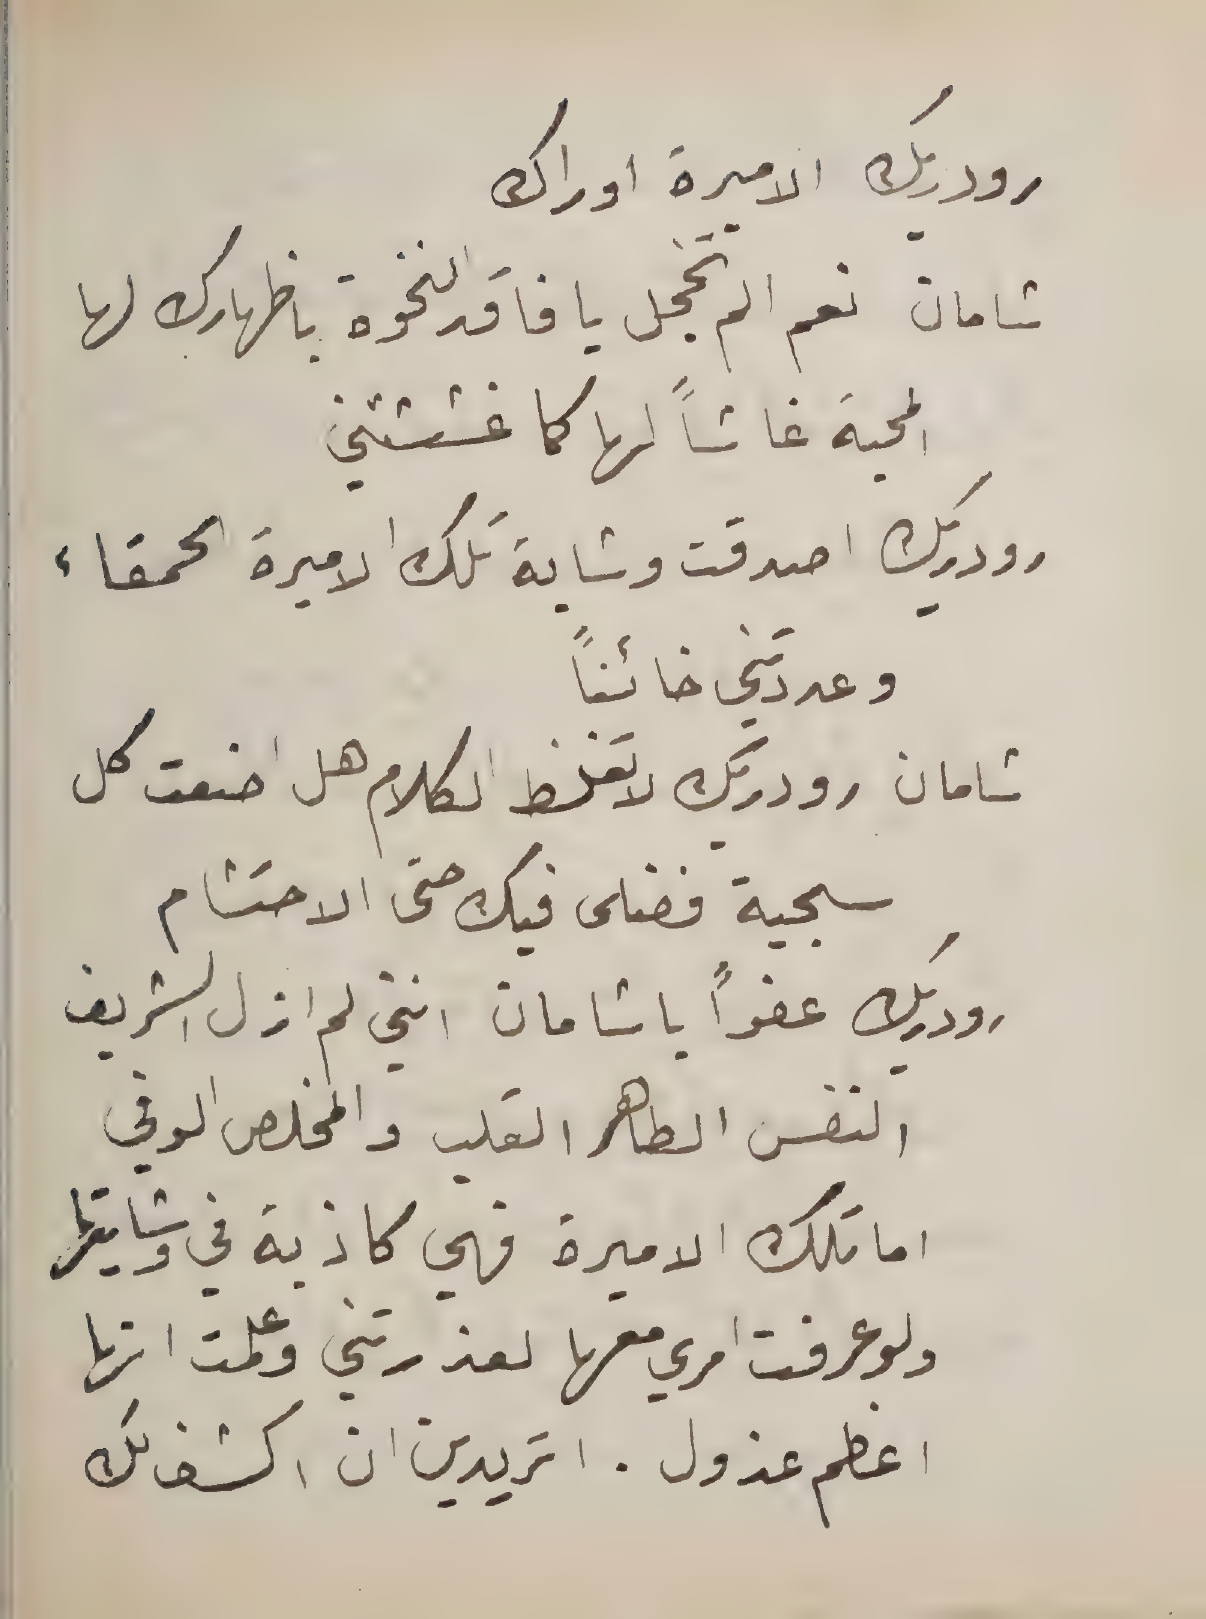 رودريك الاميرة اوراك
شامان نعم الم تخجل يا فاقد النخوة باظهارك لها
المحبة غاشاً لها كما غششتني
رودريك اصدقت وشاية تلك الاميرة الحمقاء
وعددتني خائناً
شامان رودريك لا تغلظ الكلام هل اضعت كل
سجية فضلى فيك حتى الاحتشام
رودريك عفواً يا شامان انني لم ازل الشريف
النفس الطاهر القلب والمخلص الوفي
اما تلك الاميرة فهي كاذبة في وشايتها
ولو عرفت امري معها لعذرتني وعلمت انها
اعظم عذول . اتريدين ان اكشف لك